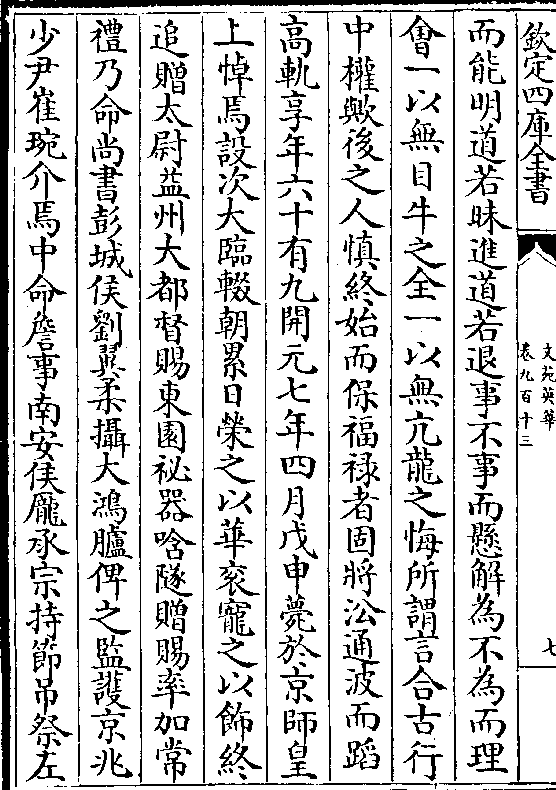 欽定四庫全書
文苑英華
卷九百十三
七
而能明道若昧進道若退事不事而懸解為不為而理
會一以無目牛之全一以無亢龍之悔所謂言合古行
中權歟後之人慎終始而保福禄者固將㳂通波而蹈
高軌享年六十有九開元七年四月戊申薨於京師皇
上悼焉設次大臨輟朝累日榮之以華衮寵之以飾終
追贈太尉益州大都督賜東園祕器唅隧贈賜率加常
禮乃命尚書彭城侯劉㢲柔攝大鴻臚俾之監護京兆
少尹崔琬介焉中命詹事南安侯龐承宗持節吊祭左